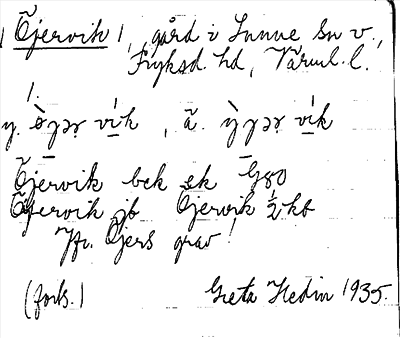 Öjervik 1, gård i Sunne sn v.,
Fryksd. hd, Värml. l.
1.
y. ø̀jər vík, ä. ỳjər vík
Öjervik bek sk G80
Öjervik jb Öjervik ½ kb
Jfr. Öjers grav!
(forts.) Greta Hedin 1935.